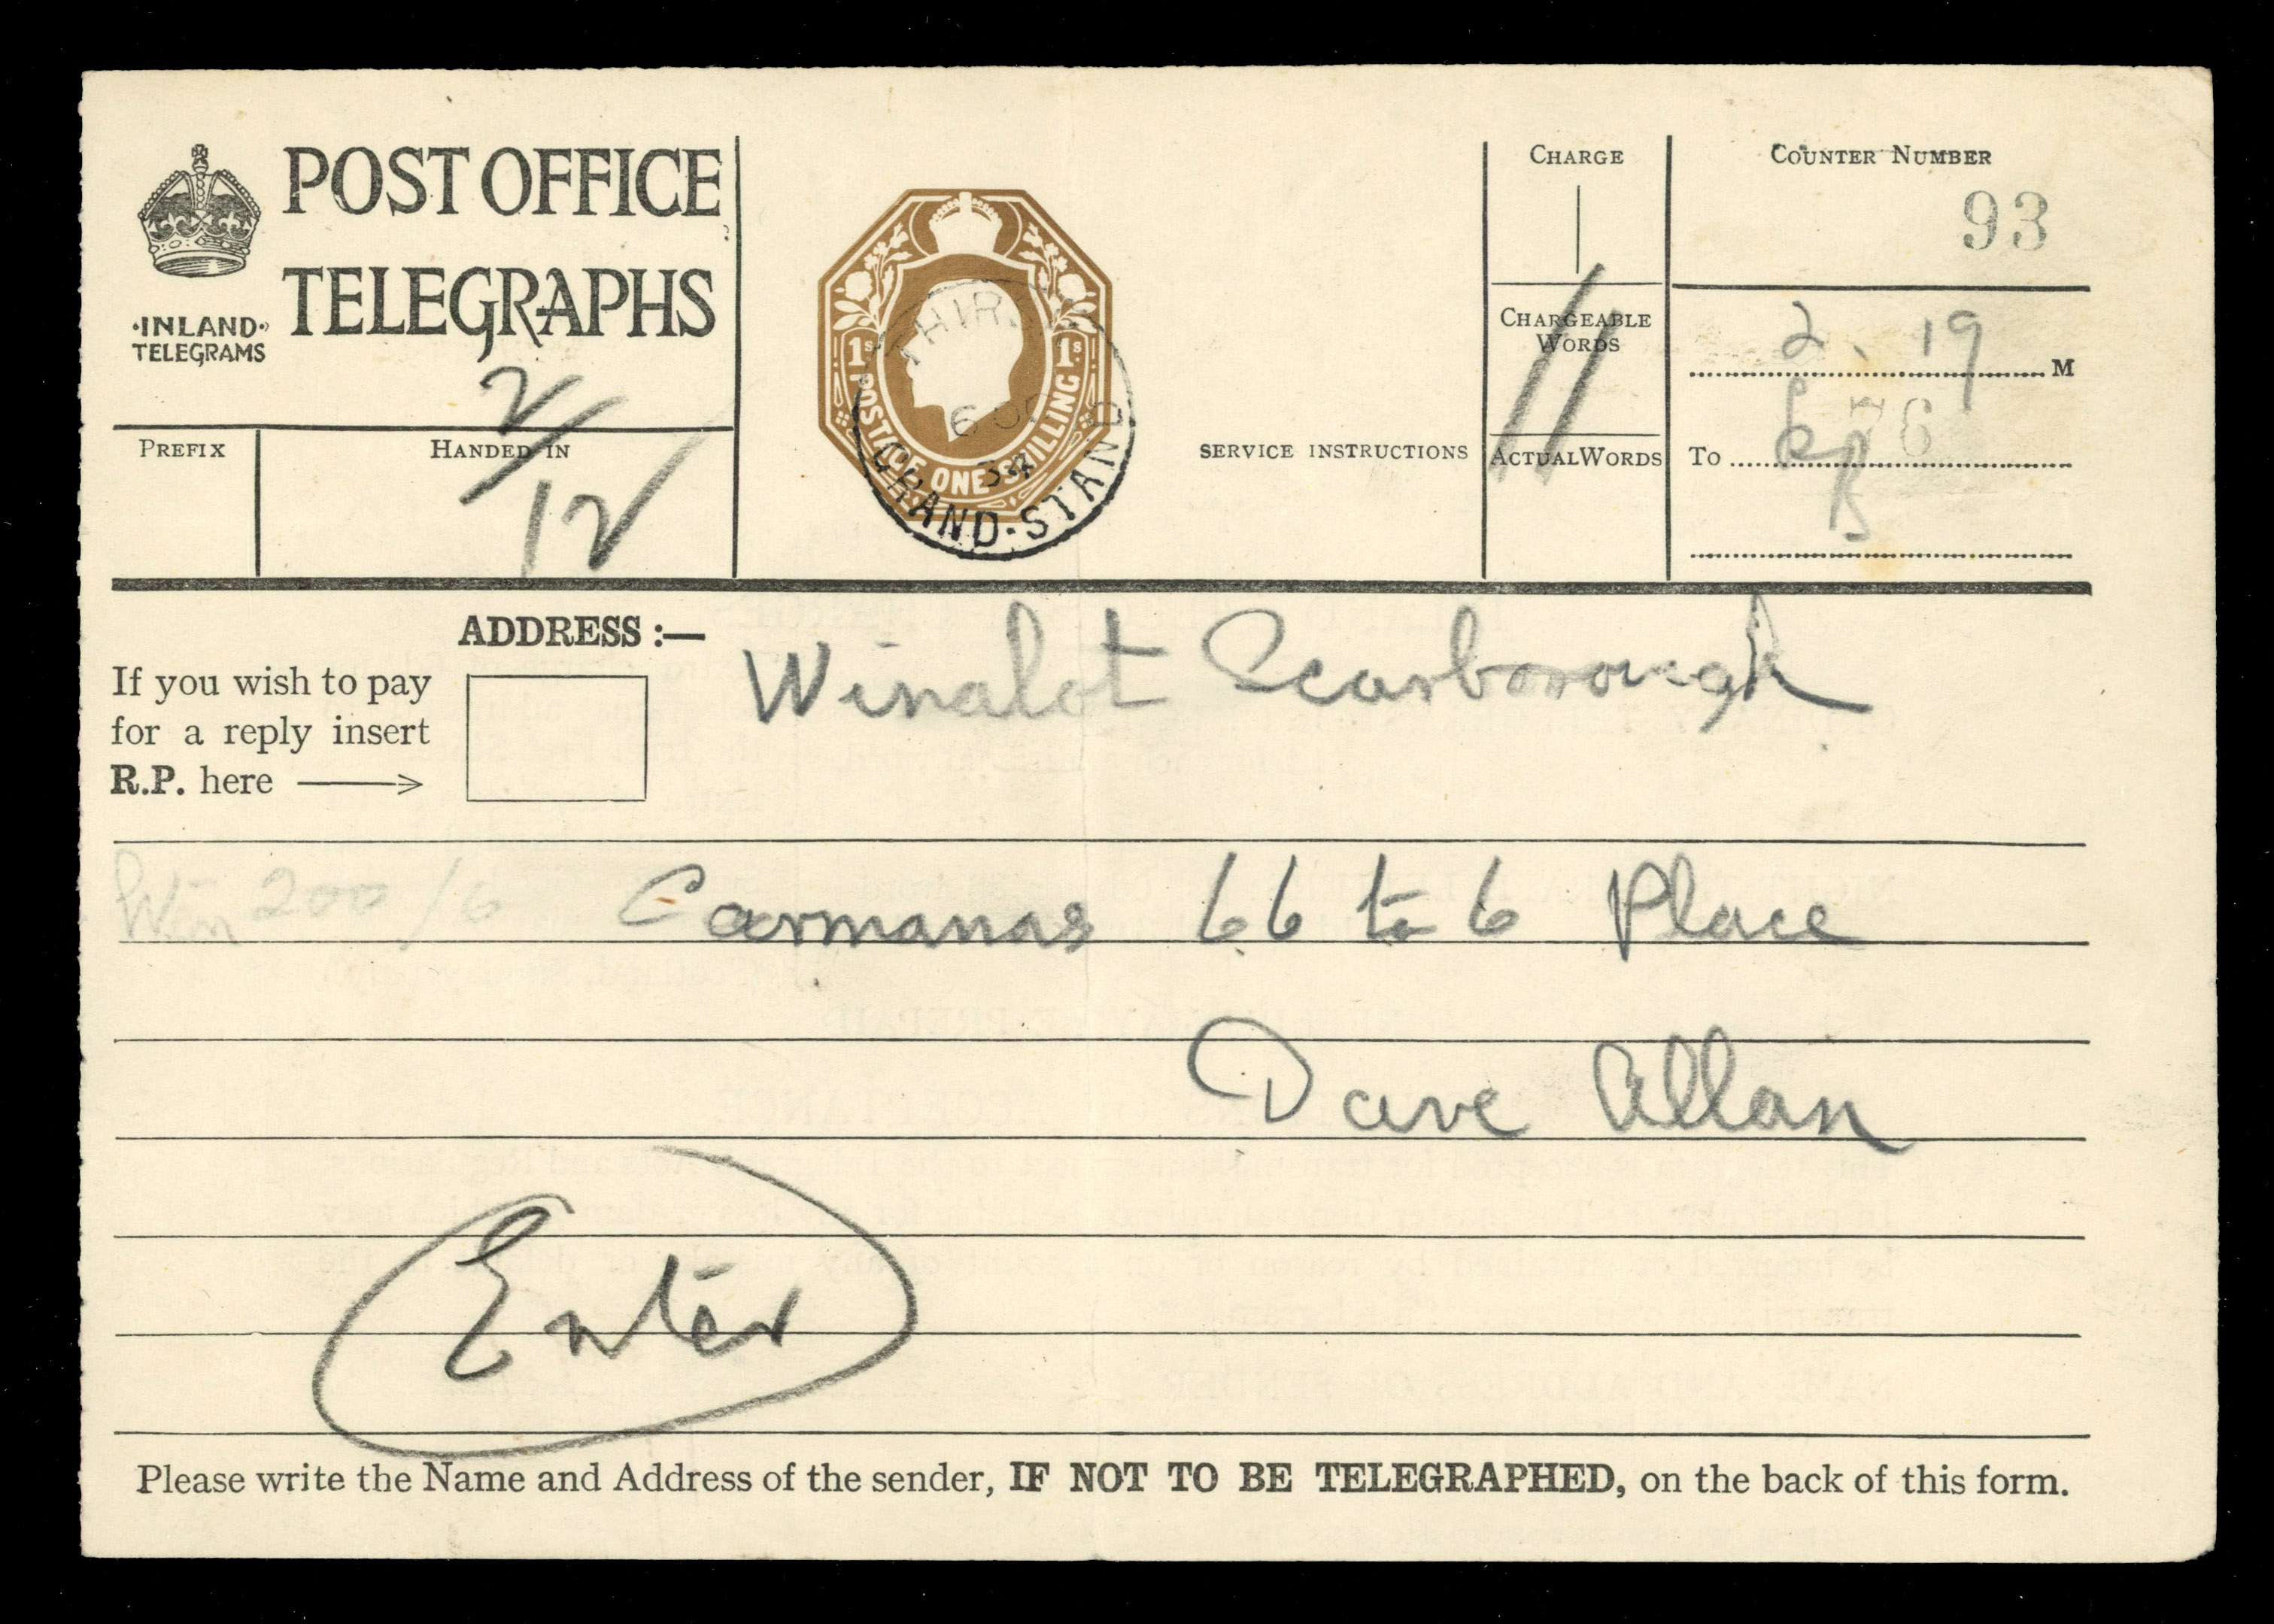 POST OFFICE
TELEGRAPHS
·INLAND·
TELEGRAMS
PREFIX
HANDED IN
2/12
1s 1s
POSTAGE ONE SHILLING
6
GRAND-STAND
SERVICE INSTRUCTIONS
CHARGE
CHARGEABLE
WORDS
11
ACTUAL WORDS
COUNTER NUMBER
93
2. 19
M
To
ADDRESS :—
Winalot Scarborough
If you wish to pay
for a reply insert
R.P. here
Win 200/6 Carmanas 66 to 6 Place
Dave Allan
Enter
Please write the Name and Address of the sender, IF NOT TO BE TELEGRAPHED, on the back of this form.